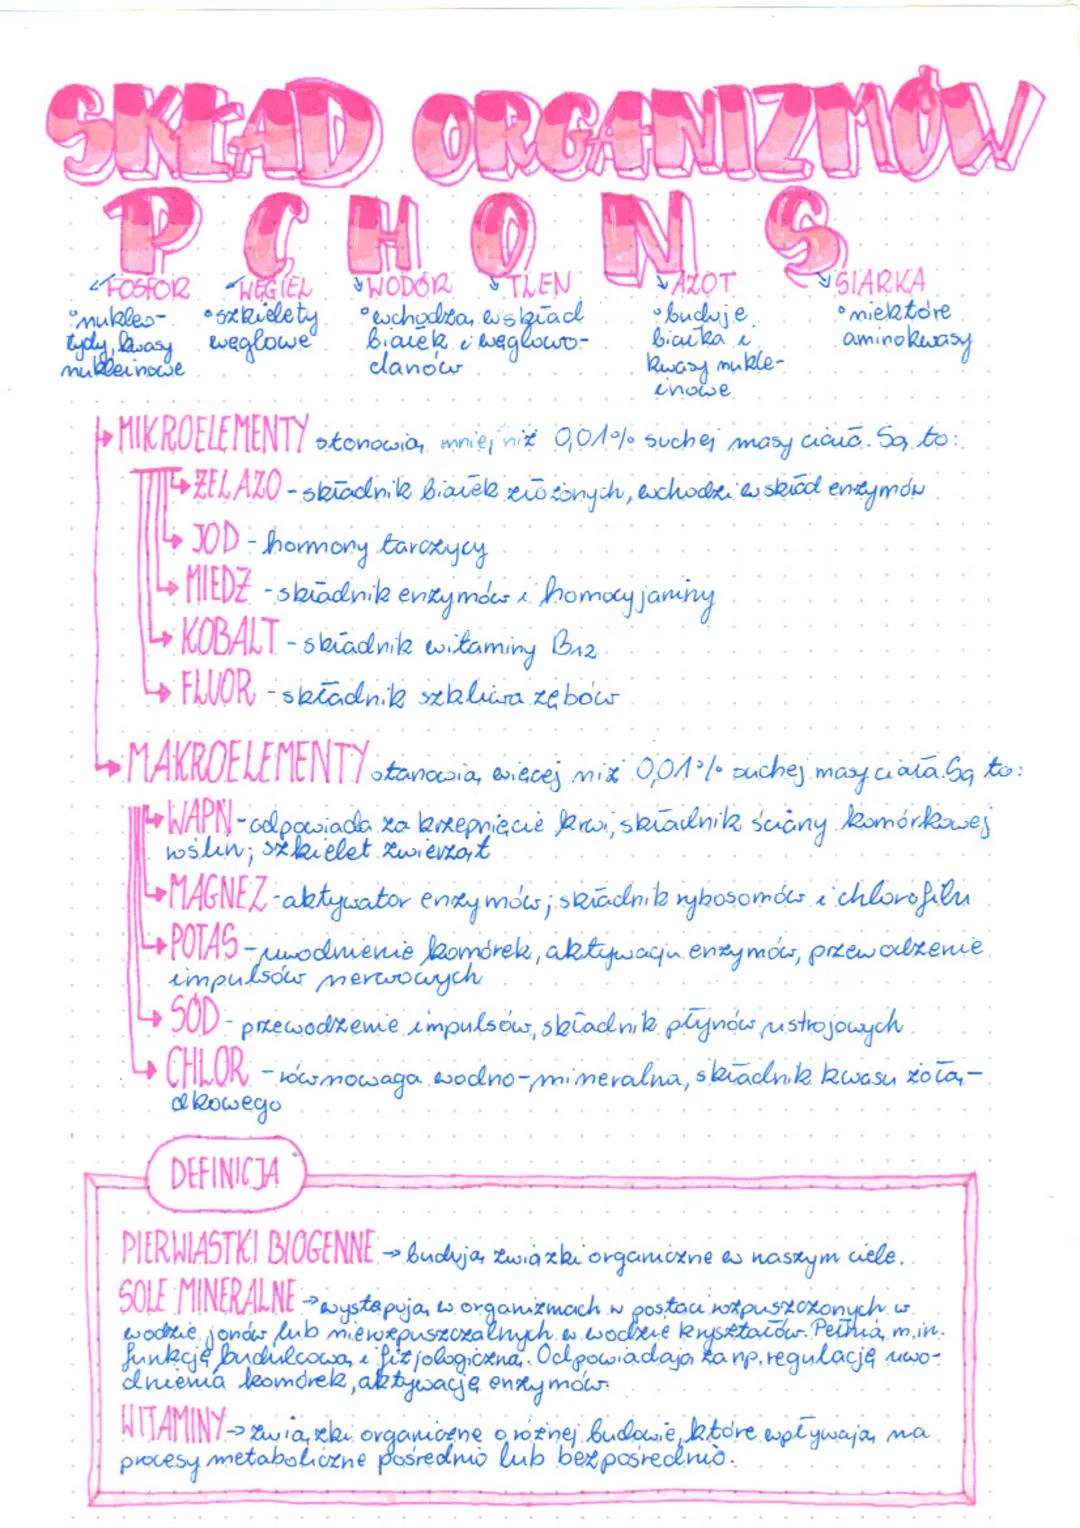 SKŁAD ORGANIZMÓW
P C H O N S
FOSFOR WĘGIEL WODÓR TLEN AZOT SIARKA
nukleo-
tydy, kwasy
nukleinowe
szkielety
węglowe
wchodzą w skład
białek i węglowo-
danów
buduje
białka i
kwasy nukle-
inowe
niektóre
aminokwasy
MIKROELEMENTY stonowią mniej niż 0,01% suchej masy ciała. Są to:
ŻELAZO - składnik białek złożonych, wchodzi w skład enzymów
JOD - hormony tarczycy
MIEDŹ - składnik enzymów i homocyjaniny
KOBALT - składnik witaminy B12
FLUOR - składnik szkliwa zębów
MAKROELEMENTY stanowią więcej niż 0,01% suchej masy ciała. Są to:
WAPŃ - odpowiada za krzepnięcie krwi, składnik ściany komórkowej
roślin; szkielet zwierząt
MAGNEZ - aktywator enzymów; składnik rybosomów i chlorofilu
POTAS - uwodnienie komórek, aktywacja enzymów, przewodzenie
impulsów nerwowych
SÓD - przewodzenie impulsów, składnik płynów ustrojowych
CHLOR - równowaga wodno-mineralna, składnik kwasu żołą-
dkowego
DEFINICJA
PIERWIASTKI BIOGENNE → budują związki organiczne w naszym ciele.
SOLE MINERALNE → występują w organizmach w postaci rozpuszczonych w
wodzie jonów lub nierozpuszczalnych w wodzie kryształów. Pełnią m.in.
funkcję budulcową i fizjologiczną. Odpowiadają za np. regulację uwo-
dnienia komórek, aktywację enzymów.
WITAMINY → związki organiczne o różnej budowie, które wpływają na
procesy metaboliczne pośrednio lub bezpośrednio.